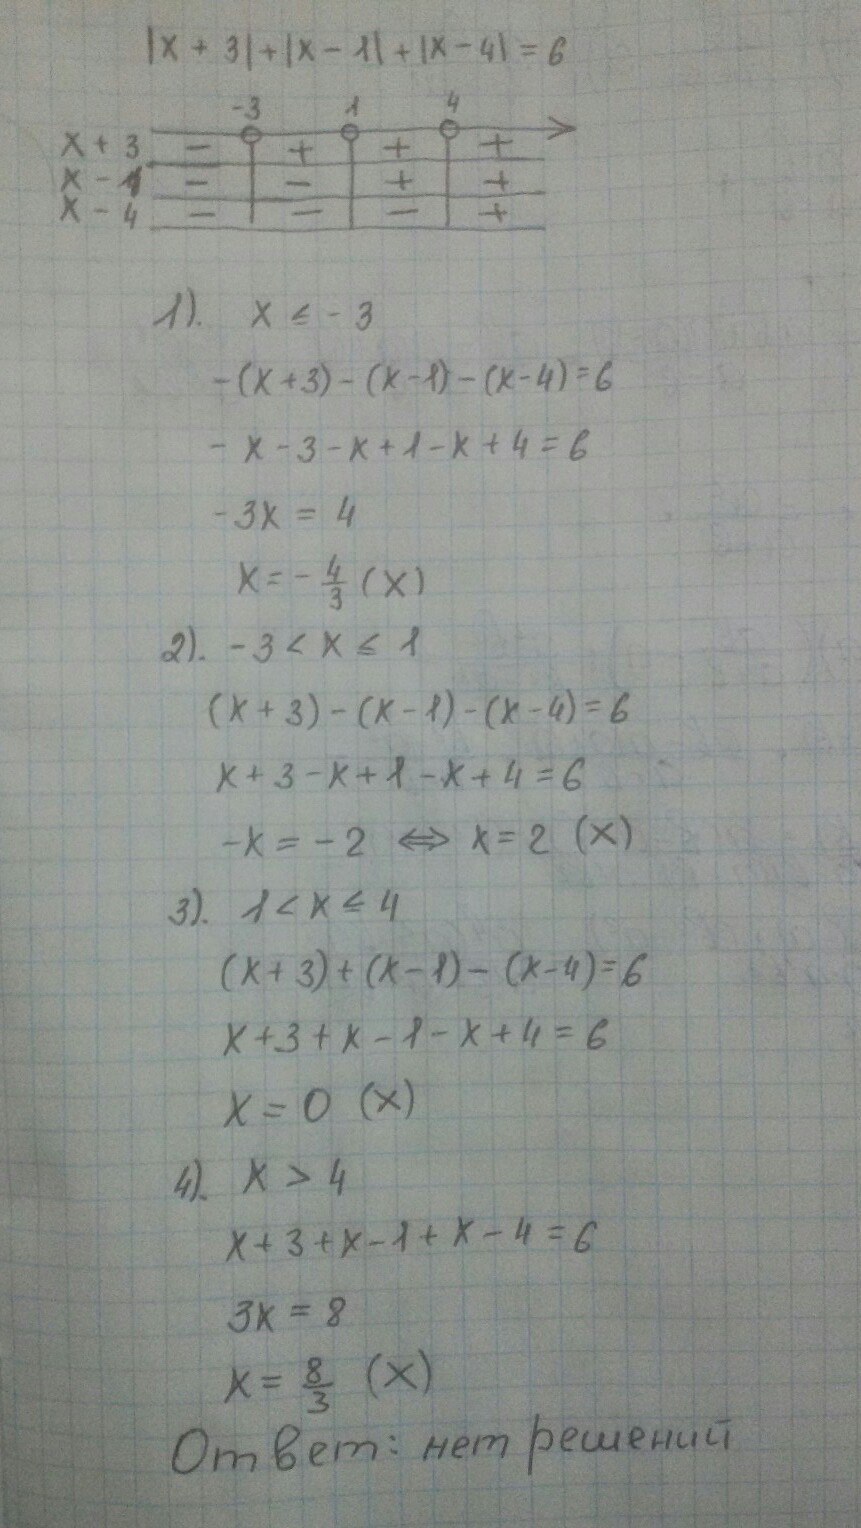 |x + 3| + |x - 1| + |x - 4| = 6
-3 1 4
x + 3 - + + +
x - 1 - - + +
x - 4 - - - +
1). x ≤ - 3
-(x+3) - (x-1) - (x-4) = 6
- x - 3 - x + 1 - x + 4 = 6
-3x = 4
x = - 4/3 (x)
2). - 3 < x ≤ 1
(x + 3) - (x - 1) - (x - 4) = 6
x + 3 - x + 1 - x + 4 = 6
-x = - 2 ⇔ x = 2 (x)
3). 1 < x ≤ 4
(x + 3) + (x - 1) - (x - 4) = 6
x + 3 + x - 1 - x + 4 = 6
x = 0 (x)
4). x > 4
x + 3 + x - 1 + x - 4 = 6
3x = 8
x = 8/3 (x)
Ответ: нет решений